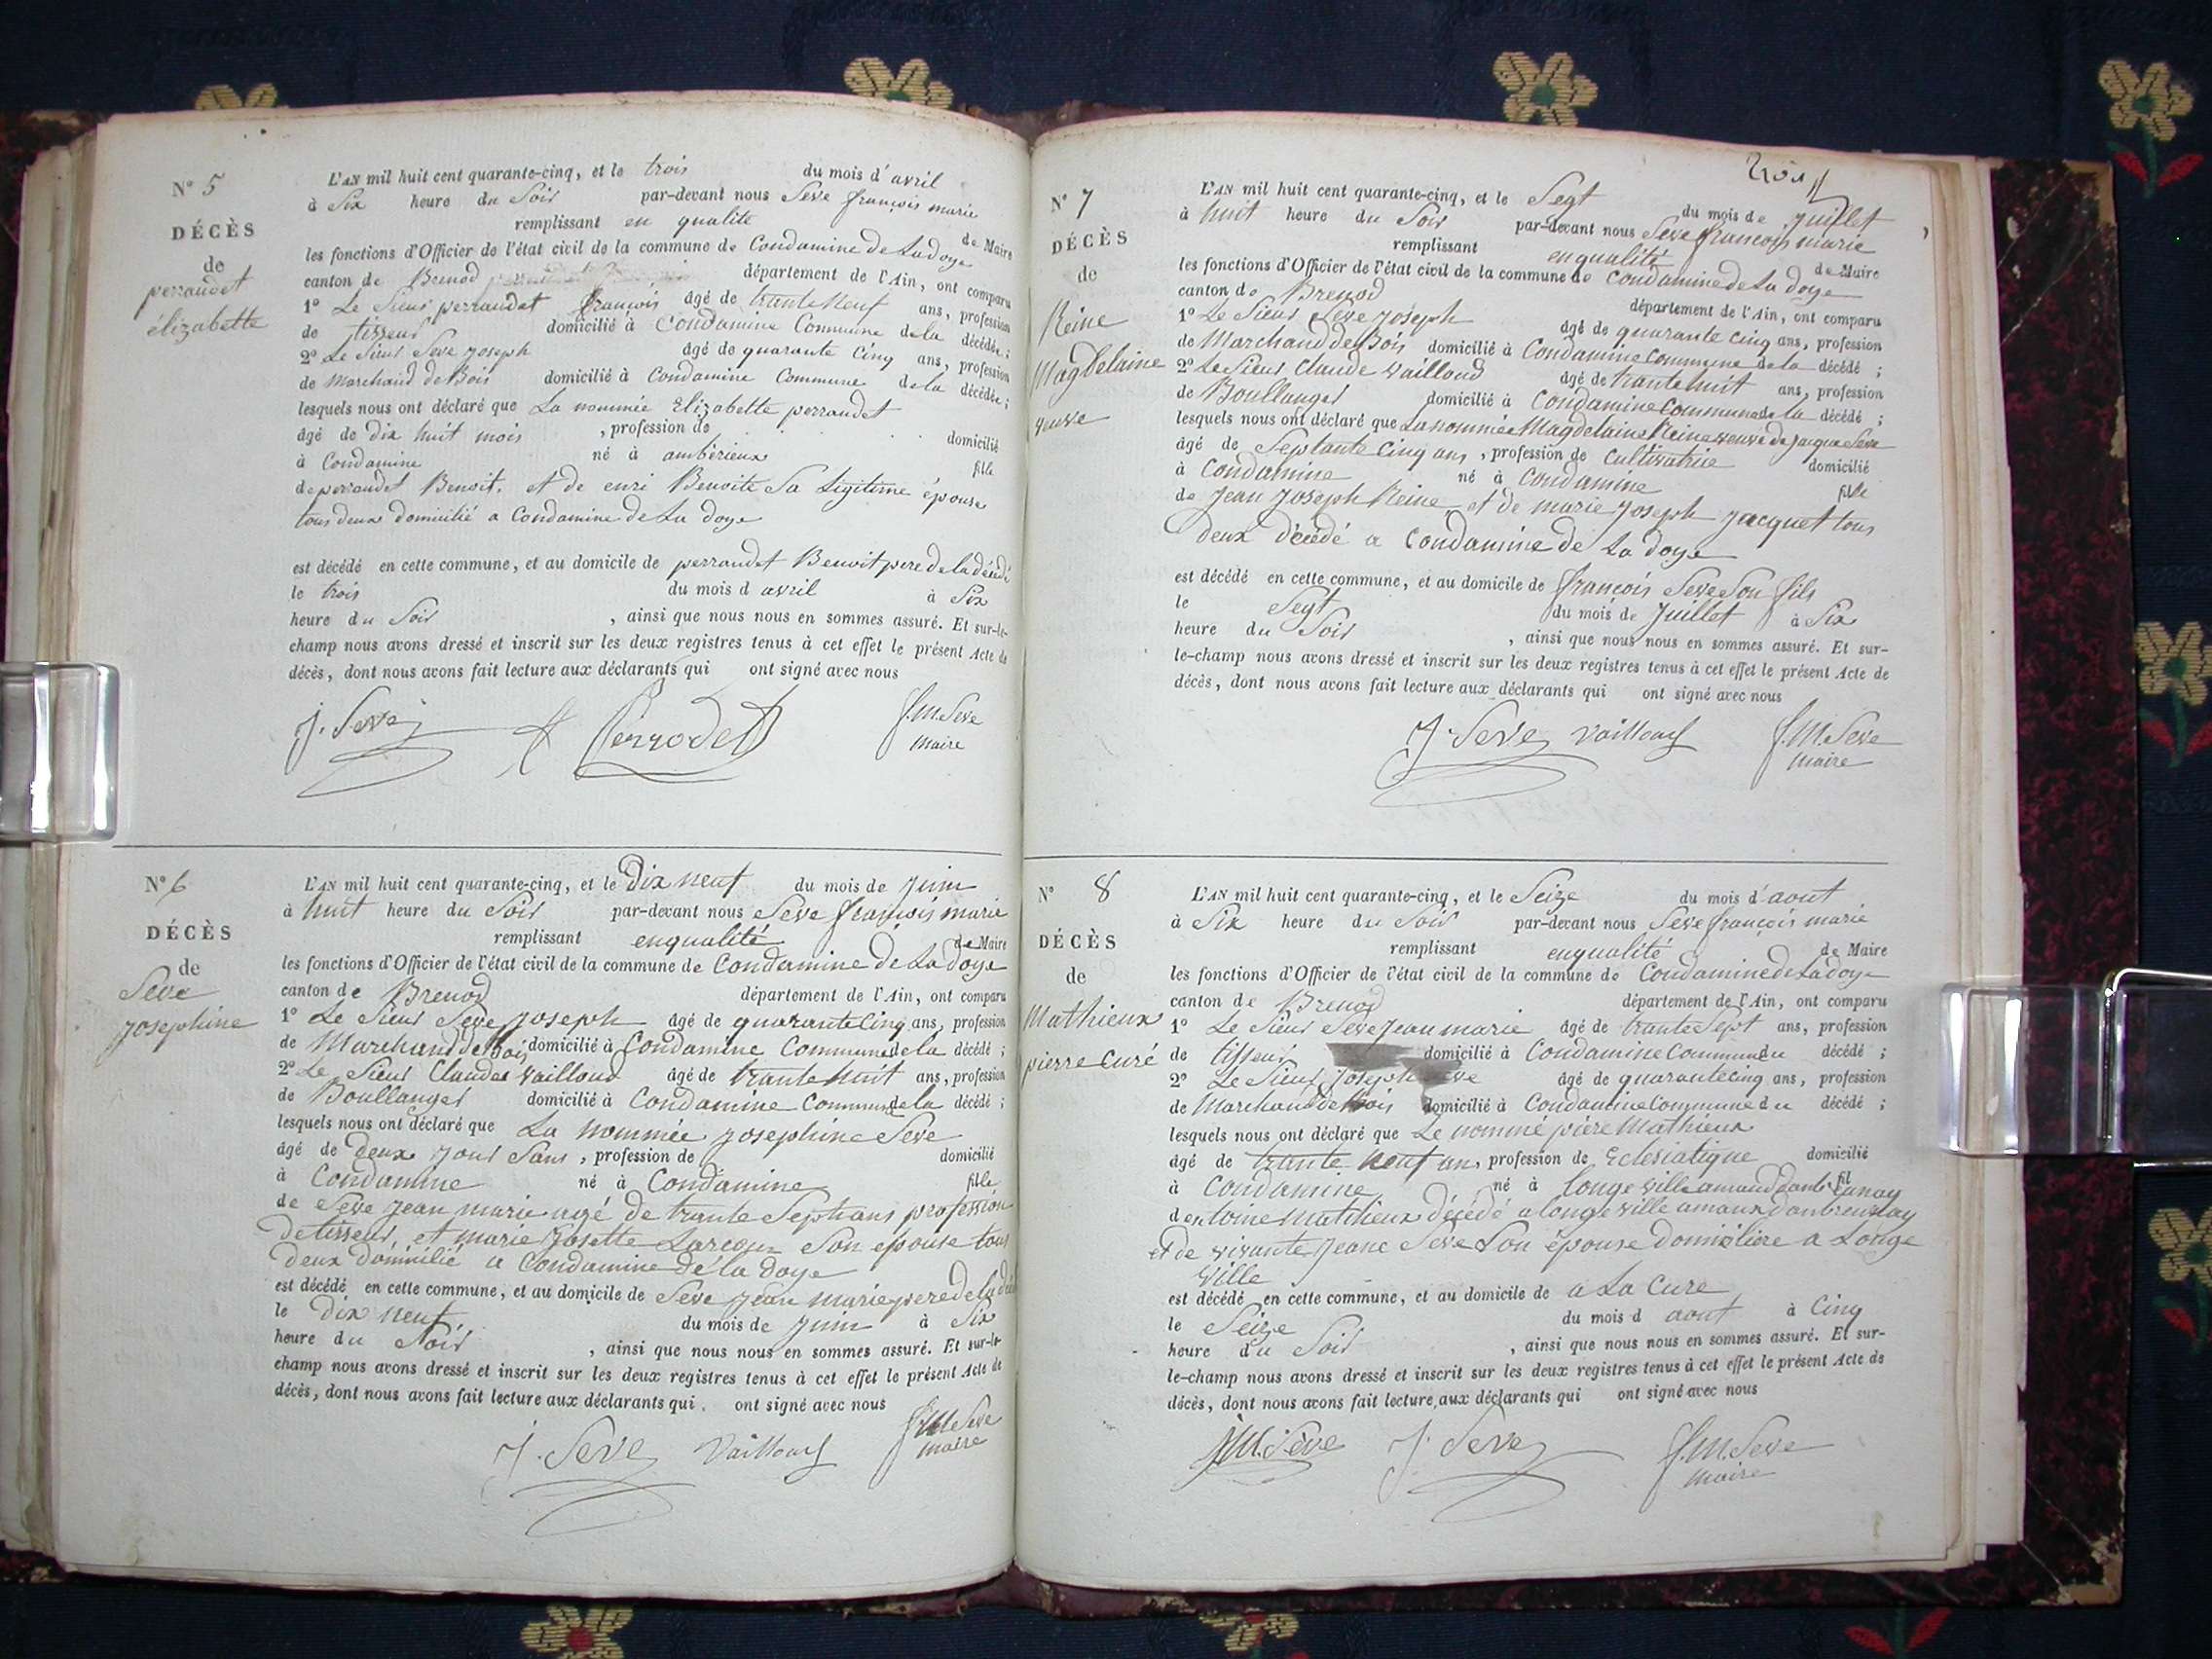 N° 5
DÉCÈS
de
perraudet
élizabette
L'AN mil huit cent quarante-cinq, et le trois du mois d'avril
à Six heure du Soir par-devant nous Seve françois marie
remplissant en qualité de Maire
les fonctions d'Officier de l'état civil de la commune de Condamine de La doye
canton de Brenod département de l'Ain, ont comparu
1° Le Sieur perraudet françois âgé de trante neuf ans, profession
de tisseur domicilié à Condamine Commune de la décédée;
2° Le Sieur Seve joseph âgé de quarante Cinq ans, profession
de Marchand de Bois domicilié à Condamine Commune de la décédée;
lesquels nous ont déclaré que La nommée Elizabette perraudet
âgé de dix huit mois , profession de domicilié
à Condamine né à ambérieux fille
de perraudet Benoit. et de enri Benoite Sa Légitime épouse
tous deux domicilié a Condamine de La doye
est décédé en cette commune, et au domicile de perraudet Benoit pere de la décédé
le trois du mois d avril à Six
heure du Soir , ainsi que nous nous en sommes assuré. Et sur-le-
champ nous avons dressé et inscrit sur les deux registres tenus à cet effet le présent Acte de
décès, dont nous avons fait lecture aux déclarants qui ont signé avec nous
J. Seve Perrodet f.m. Seve
maire
N° 6
DÉCÈS
de
Seve
josephine
L'AN mil huit cent quarante-cinq, et le Dix neuf du mois de juin
à huit heure du Soir par-devant nous Seve françois marie
remplissant en qualité de Maire
les fonctions d'Officier de l'état civil de la commune de Condamine de La doye
canton de Brenod département de l'Ain, ont comparu
1° Le Sieur Seve joseph âgé de quarante Cinq ans, profession
de Marchand de Bois domicilié à Condamine Commune de la décédé;
2° Le Sieur Claude Vailloud âgé de trante huit ans, profession
de Boullanger domicilié à Condamine Commune de la décédé;
lesquels nous ont déclaré que La nommée josephine Seve
âgé de deux jour Sans , profession de domicilié
à Condamine né à Condamine fille
de Seve jean marie agé de trante Sept ans profession
de tisseur, et marie josette Son epouse tous
deux domicilié a Condamine de la doye
est décédé en cette commune, et au domicile de Seve jean marie pere de la
le Dix neuf du mois de juin à Six
heure du Soir , ainsi que nous nous en sommes assuré. Et sur-le-
champ nous avons dressé et inscrit sur les deux registres tenus à cet effet le présent Acte de
décès, dont nous avons fait lecture aux déclarants qui ont signé avec nous
J. Seve Vailloud f.m Seve
maire
N° 7
DÉCÈS
de
Reine
Magdelaine
veuve
L'AN mil huit cent quarante-cinq, et le Sept du mois de juillet
à huit heure du Soir par-devant nous Seve françois marie
remplissant en qualité de Maire
les fonctions d'Officier de l'état civil de la commune de Condamine de La doye
canton de Brenod département de l'Ain, ont comparu
1° Le Sieur Seve joseph âgé de quarante Cinq ans, profession
de Marchand de Bois domicilié à Condamine Commune de la décédé;
2° Le Sieur Claude Vailloud âgé de trante huit ans, profession
de Boullanger domicilié à Condamine Commune de la décédé;
lesquels nous ont déclaré que La nommée Magdelaine Reine veuve de jacque Seve
âgé de Septante Cinq ans , profession de Cultivatrice domicilié
à Condamine né à Condamine fille
de jean joseph Reine et de marie joseph jacquet tous
deux décédé a Condamine de La doye
est décédé en cette commune, et au domicile de françois Seve Son fils
le Sept du mois de juillet à Six
heure du Soir , ainsi que nous nous en sommes assuré. Et sur-
le-champ nous avons dressé et inscrit sur les deux registres tenus à cet effet le présent Acte de
décès, dont nous avons fait lecture aux déclarants qui ont signé avec nous
J. Seve Vailloud f.m. Seve
maire
N° 8
DÉCÈS
de
Mathieux
pierre Curé
L'AN mil huit cent quarante-cinq, et le Seize du mois d'aout
à Six heure du Soir par-devant nous Seve françois marie
remplissant en qualité de Maire
les fonctions d'Officier de l'état civil de la commune de Condamine de La doye
canton de Brenod département de l'Ain, ont comparu
1° Le Sieur Seve jean marie âgé de trante Sept ans, profession
de tisseur domicilié à Condamine Commune du décédé;
2° Le Sieur joseph Seve âgé de quarante cinq ans, profession
de Marchand de Bois domicilié à Condamine Commune du décédé;
lesquels nous ont déclaré que Le nommé piere Mathieux
âgé de trante neuf an, profession de Eclesiatique domicilié
à Condamine né à longe ville fil
Mathieux décédé a longe ville
et de vivante jeane Seve Son épouse domicilière a Longe
ville
est décédé en cette commune, et au domicile de a La Cure
le Seize du mois d aout à Cinq
heure du Soir , ainsi que nous nous en sommes assuré. Et sur-
le-champ nous avons dressé et inscrit sur les deux registres tenus à cet effet le présent Acte de
décès, dont nous avons fait lecture aux déclarants qui ont signé avec nous
JM. Seve J. Seve f.m. Seve
maire